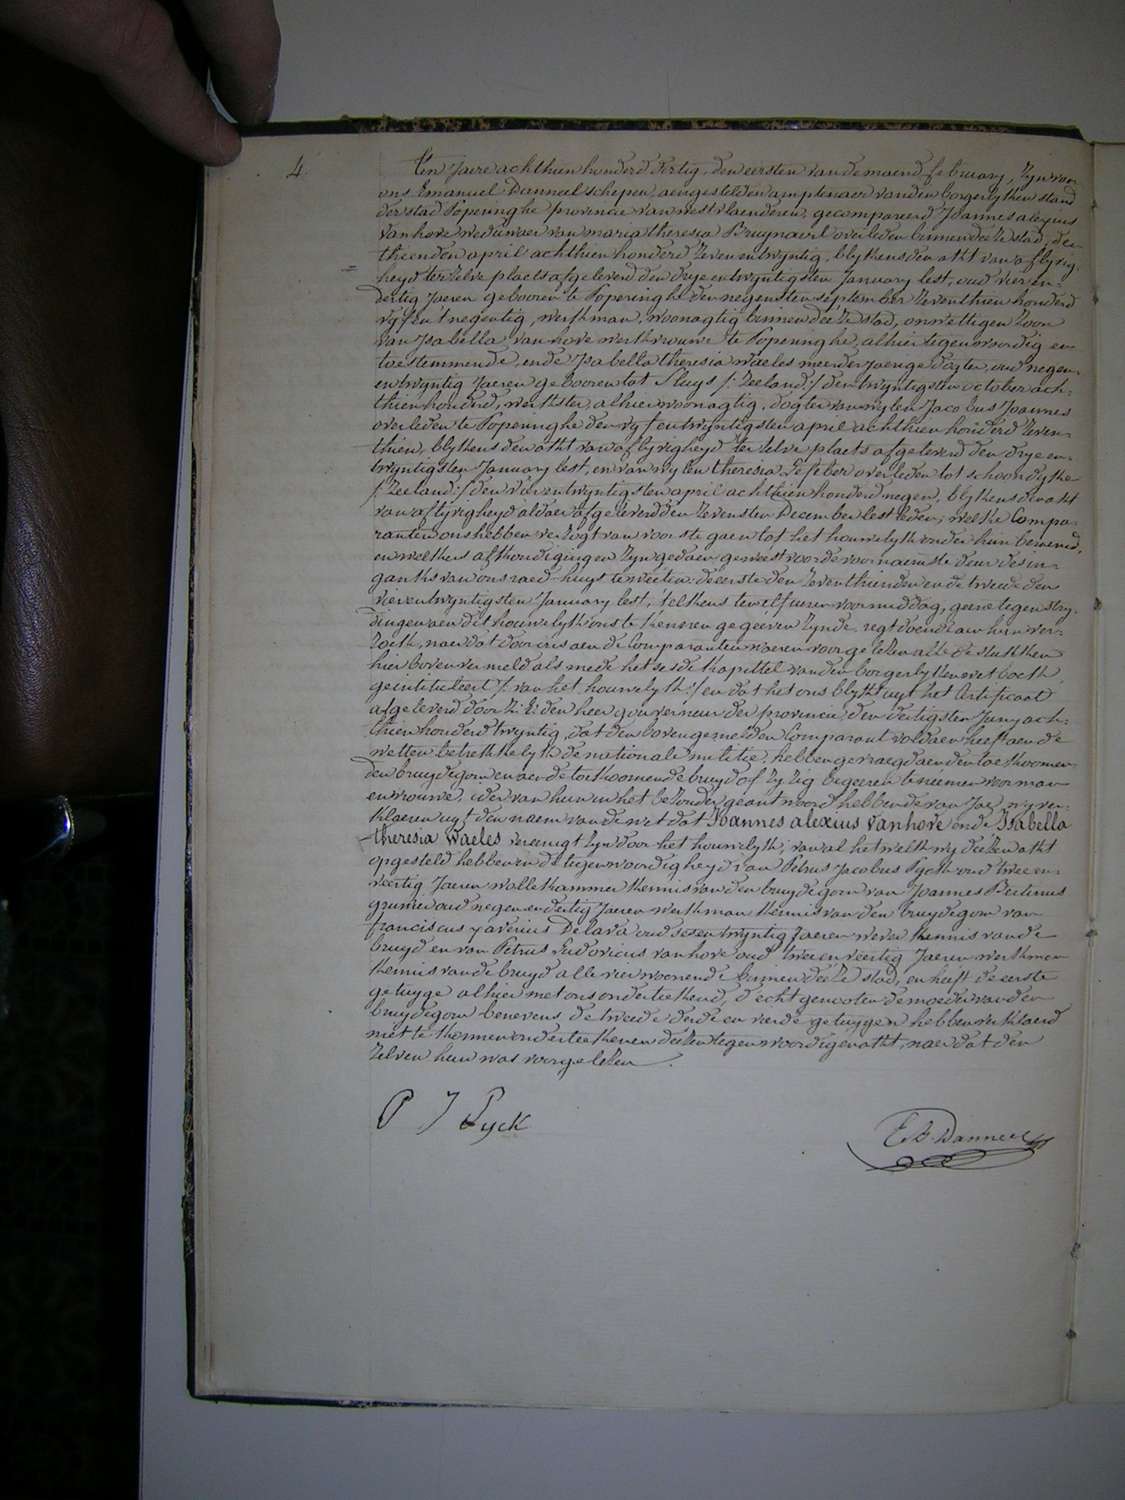 4
Ten Jaere achthien honderd dertig, den eersten van de maend february, zyn voor
ons Emanuel Danneel schepen, aengestelden amptenaer van den borgerlyken stand
der stad Poperinghe provincie van westvlaenderen, gecompareerd Joannes alexius
Vanhove weduwaer van maria theresia Bruynaert overleden binnen deeze stad, den
thienden april achthien honderd zevenentwyntig, blykens den akt van aflyvig-
heyd ter zelve plaets afgeleverd den dryeentwyntigsten January lest, oud vieren-
dertig Jaeren gebooren te Poperinghe den negensten september zeventhien honderd
vyfentnegentig, werkman, woonagtig binnen deeze stad, onwettigen zoon
van Isabella vanhove werkvrouwe te Poperinghe, alhier tegenwoordig en
toestemmende, ende Isabella theresia waeles meerderjaerige dogter, oud negen-
entwyntig Jaeren gebooren tot Sluys /: Zeeland :/ den twyntigsten october ach-
thien honderd, werkster, alhier woonagtig, dogter van wylen Jacobus Joannes
overleden te Poperinghe den vyfentwyntigsten april achthien honderd zeven-
thien, blykens den akt van aflyvigheyd ter zelve plaets afgeleverd den dryeen-
twyntigsten January lest, en van wylen theresia Lefeber overleden tot schoondyke
/: Zeeland :/ den vierentwyntigsten april achthien honderd negen, blykens den akt
van aflyvigheyd aldaer afgeleverd den zevensten December lestleden; welke Compa-
ranten ons hebben verzogt van voor te gaen tot het houwelyk onder hun beraemd,
en welkers afkondigingen zyn gedaen geweest voor de voornaemste deur des in-
ganks van ons raed-huys te weeten: de eerste den zeventhienden en de tweede den
vierentwyntigsten January lest, telkens ten elf uren voormiddag, geene tegenstry-
dingen aen dit houwelyk ons te kennen gegeeven zynde, regt doende aen hun ver-
zoek, naer dat door ons aen de Comparanten waeren voorgelezen alle de stukken
hier boven vermeld als mede het sesde kapittel van den borgerlyken wetboek
geintituleert /: van het houwelyk :/ en dat het ons blykt uyt het Certificaat
afgeleverd door Z: E: den heer gouverneur der provincie den dertigsten Juny ach-
thien honderd twyntig, dat den bovengemelden Comparant voldaen heeft aen de
wetten betrekkelyk de nationale militie, hebben gevraegd aen den toekoomen-
den bruydegom en aen de toekoomende bruyd of zy zig begeeren te neemen voor man
en vrouwe, ider van hun in het bezonder geantwoord hebbende van Jae, wy ver-
klaeren uyt den naem van de wet dat Joannes alexius vanhove ende Isabella
theresia waeles vereenigt zyn door het houwelyk; van al het welk wy deezen akt
opgesteld hebben in de tegenwoordigheyd van Petrus Jacobus Pyck oud tweeen-
veertig Jaeren wollekammer kennis van den bruydegom van Joannes Bertinus
grumez oud negenendertig Jaeren werkman kennis van den bruydegom van
franciscus xaverius Delava oud sesentwyntig Jaeren wever kennis van de
bruyd en van Petrus Ludovicus vanhove oud tweeenveertig Jaeren werkman
kennis van de bruyd alle vier woonende binnen deeze stad, en heeft de eerste
getuyge alhier met ons onderteekend, d'echtgenooten de moeder van den
bruydegom benevens de tweede derde en vierde getuygen hebben verklaerd
niet te konnen onderteekenen deezen tegenwoordigen akt, naer dat den
zelven hun was voorgelezen.
P J Pyck
E. B. Danneel